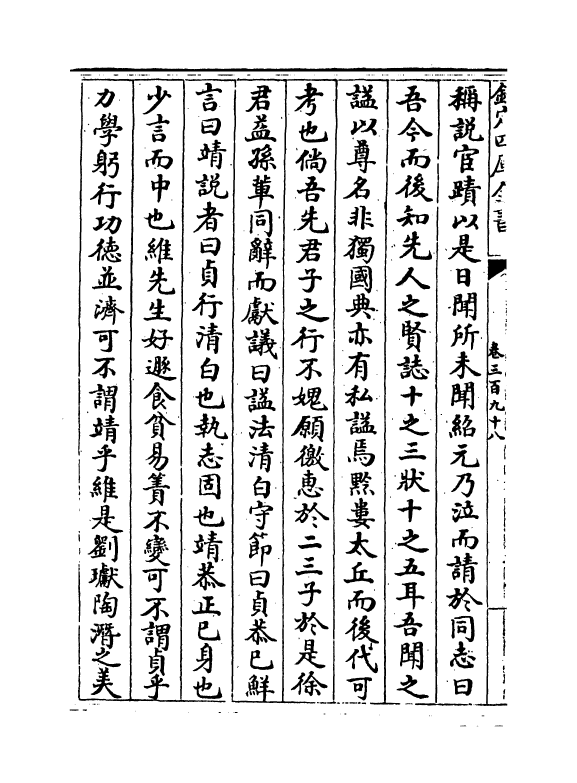 欽定四庫全書
卷三百九十八
稱説宦蹟以是日聞所未聞紹元乃泣而請於同志曰
吾今而後知先人之賢誌十之三狀十之五耳吾聞之
謚以尊名非獨國典亦有私謚焉黔婁太丘而後代可
考也倘吾先君子之行不媿願徼惠於二三子於是徐
君益孫軰同辭而獻議曰謚法清白守節曰貞恭已鮮
言曰靖説者曰貞行清白也執志固也靖恭正已身也
少言而中也維先生好遯食貧易簀不變可不謂貞乎
力學躬行功徳並濟可不謂靖乎維是劉瓛陶潛之美